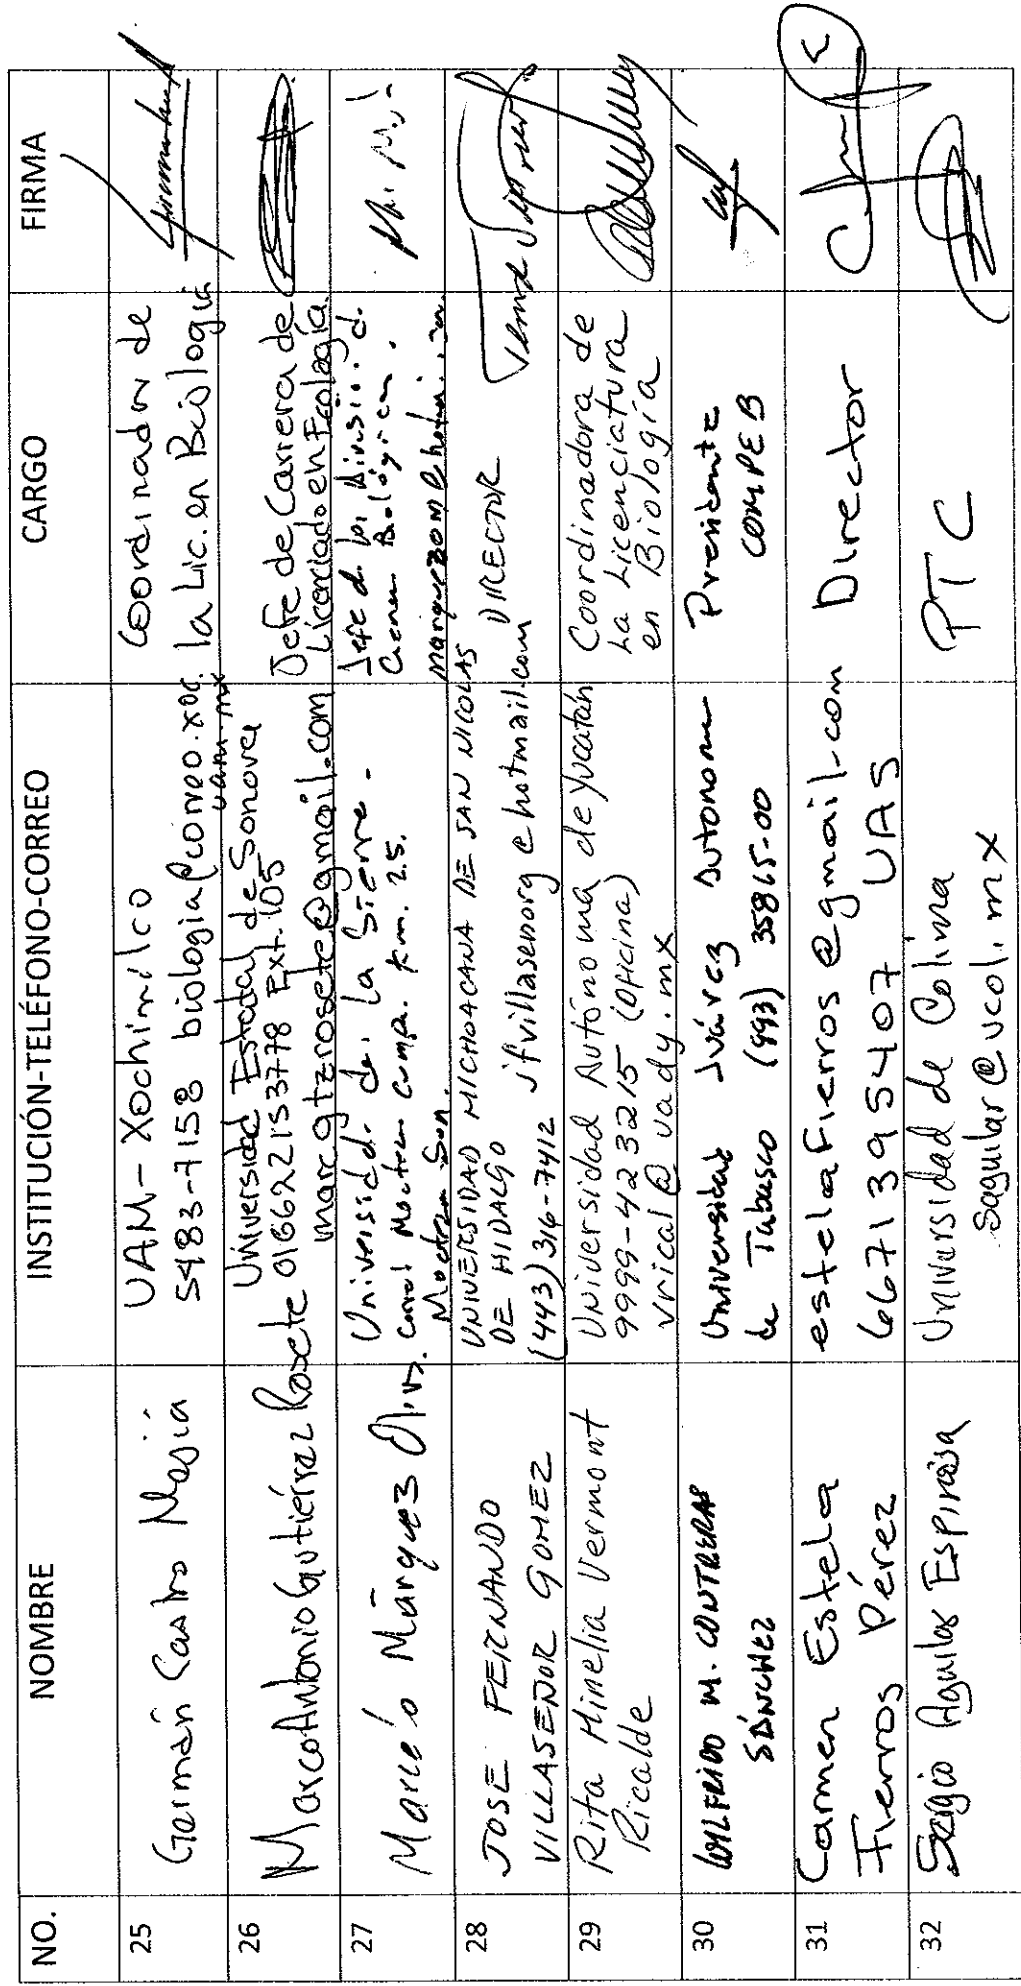 NO. NOMBRE INSTITUCIÓN-TELÉFONO-CORREO CARGO FIRMA
25 Germán Castro Mejía
UAM-Xochimilco
5483-7158 biologia@correo.xoc.
uam.mx
Coordinador de
la Lic. en Biología
26 Marco Antonio Gutiérrez Rosete
Universidad Estatal de Sonora
016622153778 Ext. 105
marcgtzrosete@gmail.com
Jefe de Carrera de
Licenciado en Ecología
27 Márquez
Universidad de la Sierra.
Km. 2.5.
Son.
Jefe de División de
Biológicas.
28 JOSE FERNANDO
VILLASEÑOR GOMEZ
UNIVERSIDAD MICHOACANA DE SAN NICOLAS
DE HIDALGO
(443) 316-7412 jfvillasenorg@hotmail.com
DIRECTOR
29 Rita Minelia Vermont
Ricalde
Universidad Autónoma de Yucatán
9999-423215 (Oficina)
vrical@uady.mx
Coordinadora de
La Licenciatura
en Biología
30 WILFRIDO M. CONTRERAS
SÁNCHEZ
Universidad Juárez Autonoma
de Tabasco (993) 35815-00
Presidente
COMPEB
31 Carmen Estela
Fierros Pérez
estelafierros@gmail.com
6671395407 UAS
Director
32 Sergio Aguilar Espinosa
Universidad de Colima
saguilar@ucol.mx
PTC